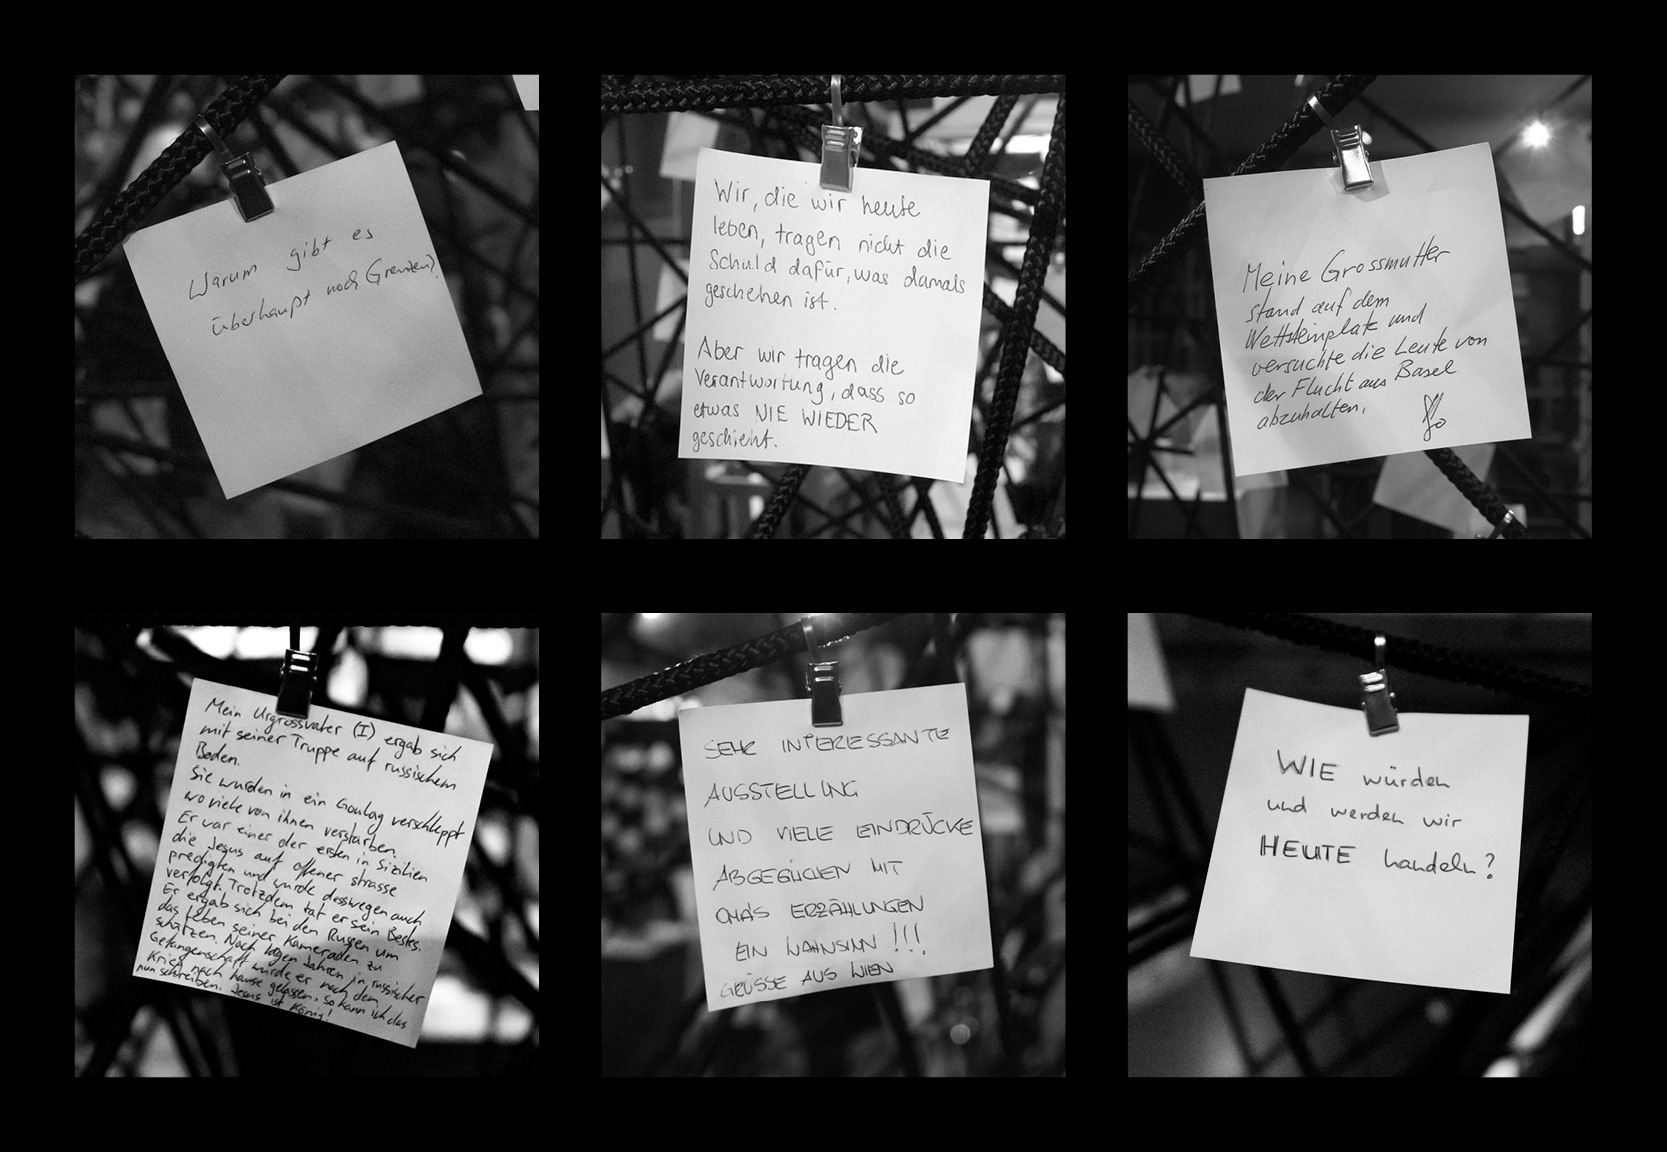 Warum gibt es
überhaupt noch Grenzen?
Wir, die wir heute
leben, tragen nicht die
Schuld dafür, was damals
geschehen ist.
Aber wir tragen die
Verantwortung, dass so
etwas NIE WIEDER
geschieht.
Meine Grossmutter
stand auf dem
Wettsteinplatz und
versuchte die Leute von
der Flucht aus Basel
abzuhalten.
Mein Urgrossvater (I) ergab sich
mit seiner Truppe auf russischem
Boden.
Sie wurden in ein Goulag verschleppt
wo viele von ihnen verstarben.
Er war einer der ersten in Sizilien
die Jesus auf offener strasse
predigten und wurde desswegen auch
verfolgt. Trotzdem tat er sein Bestes.
Er ergab sich bei den Russen um
das leben seiner Kameraden zu
schützen. Nach Jahren in russischer
Gefangenschaft wurde er nach dem
Krieg nach hause gelassen. so kann ich das
nun schreiben. Jesus ist König!
SEHR INTERESSANTE
AUSSTELLUNG
UND VIELE EINDRÜCKE
ABGEGLICHEN MIT
OMA'S ERZÄHLUNGEN
EIN WAHNSINN !!!
GRÜSSE AUS WIEN
WIE würden
und werden wir
HEUTE handeln?